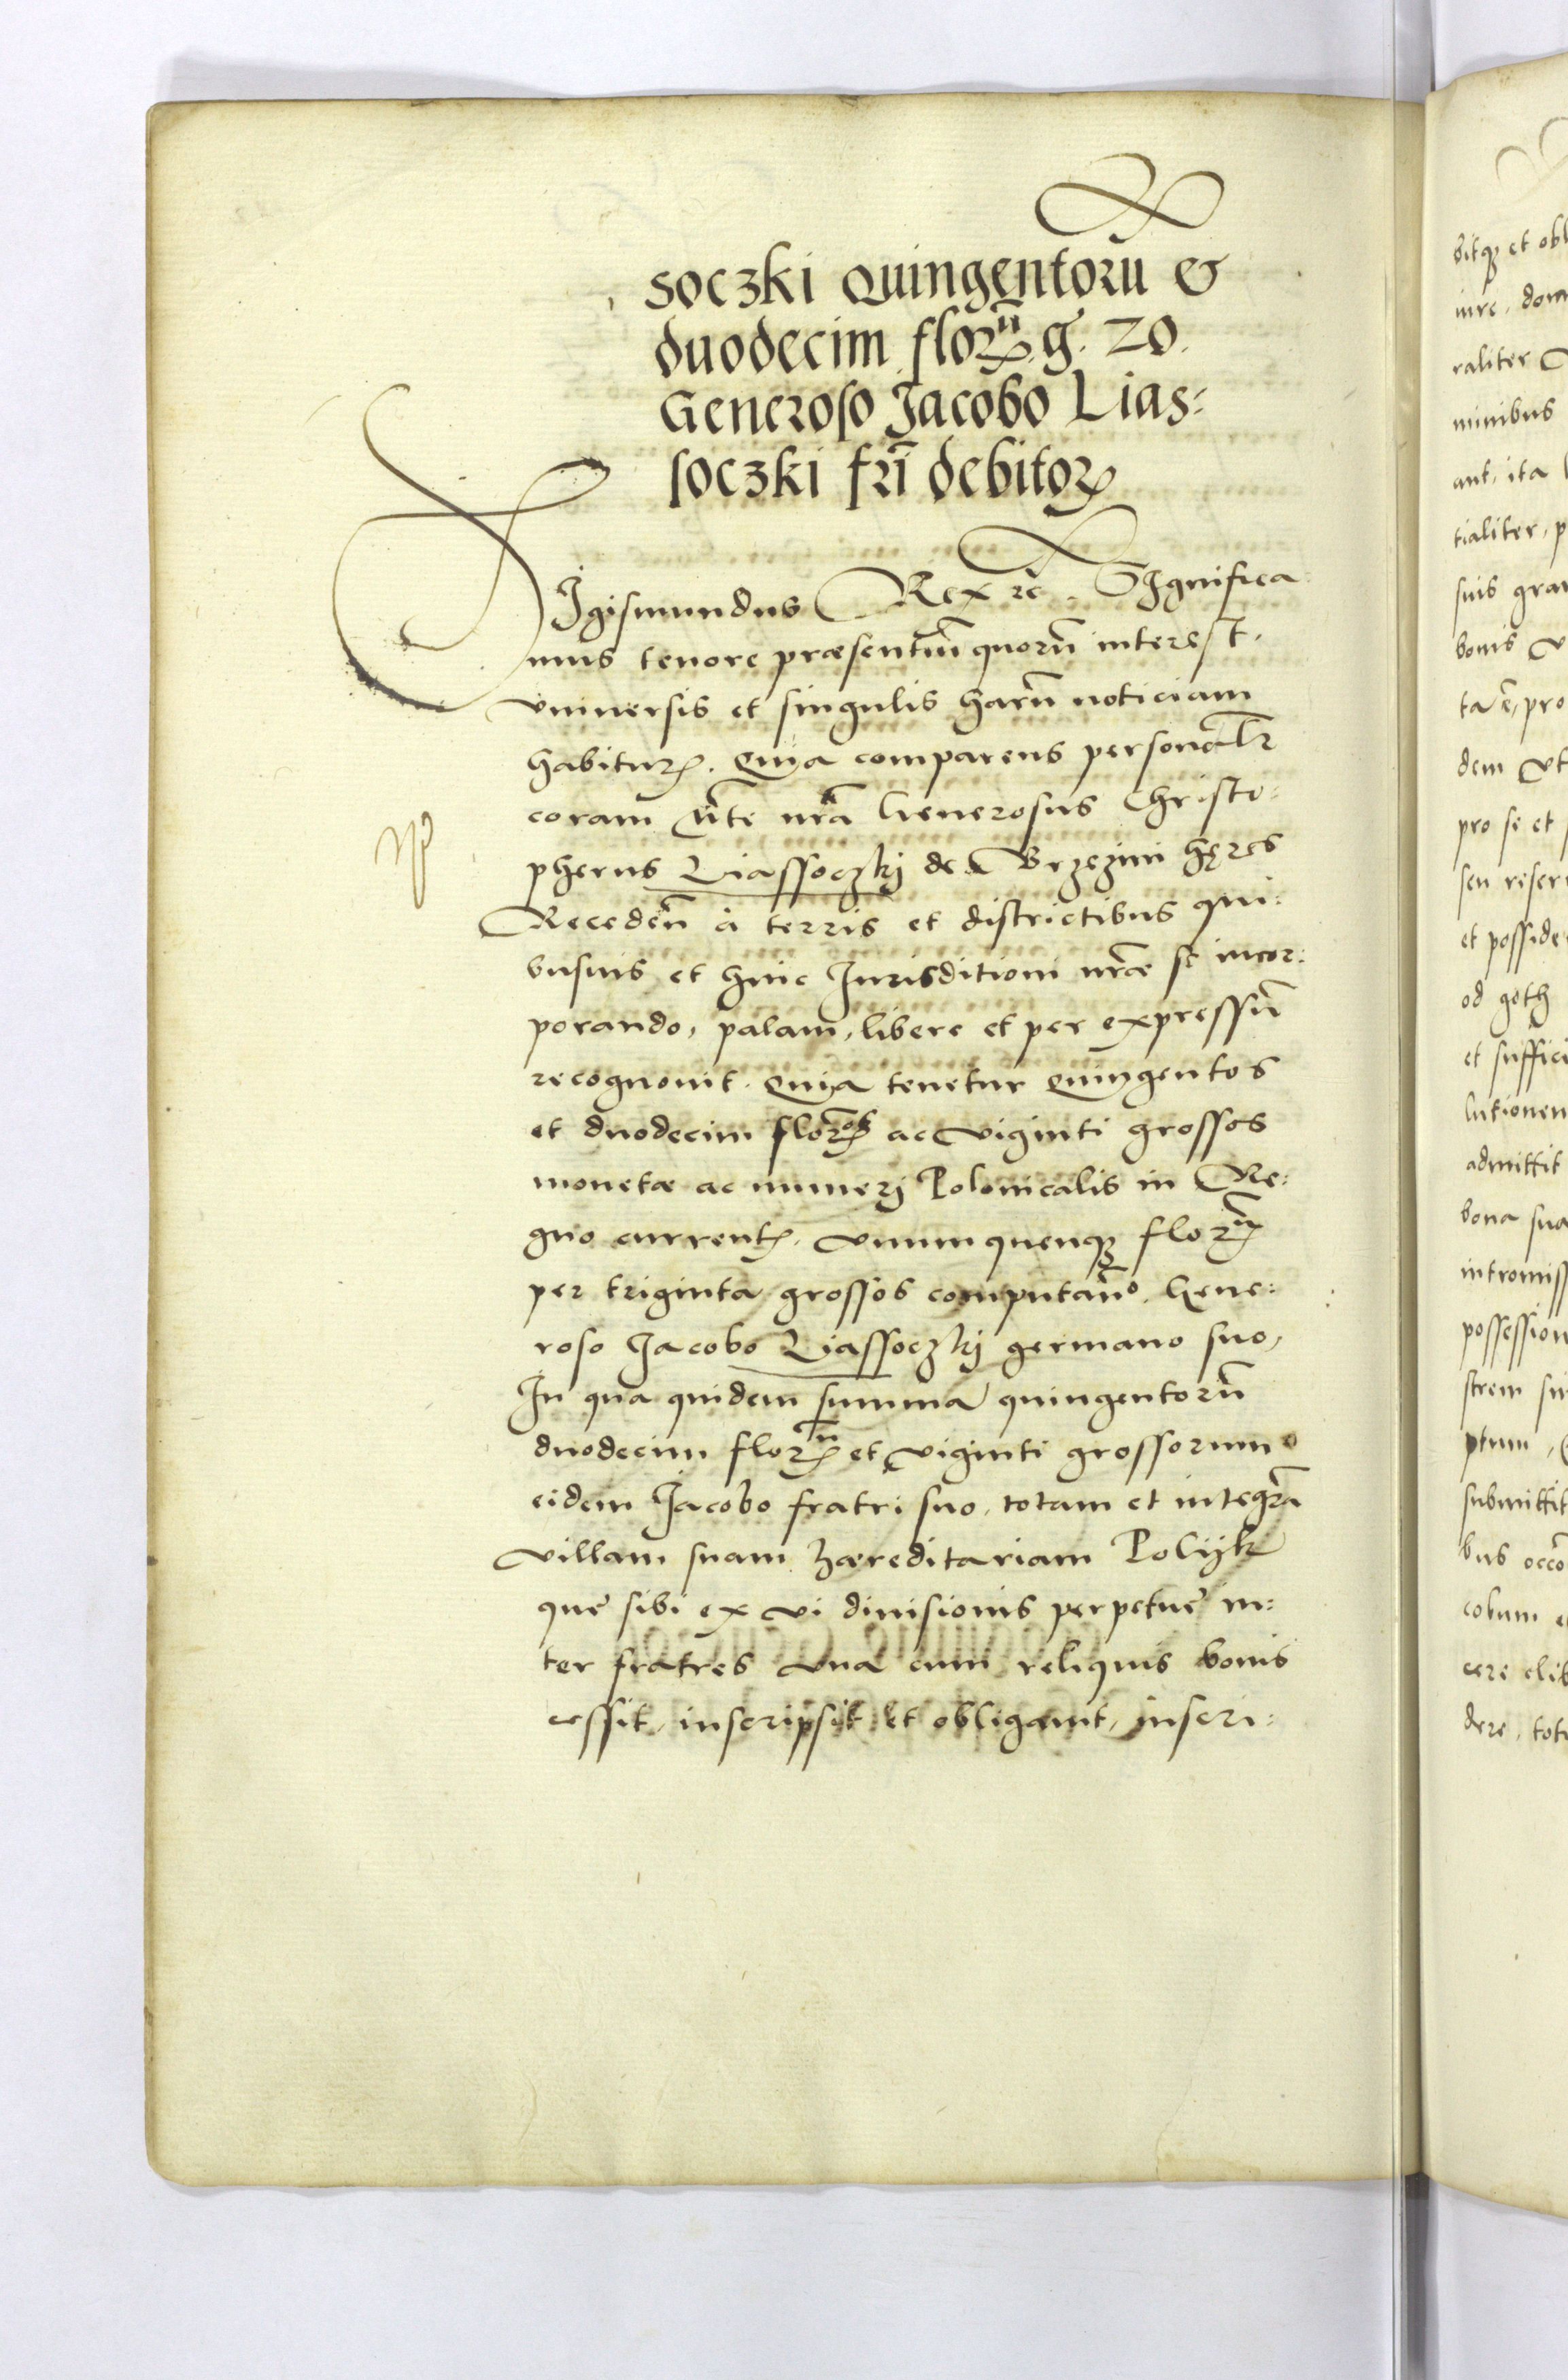 soczki quingentorũ &
duodecim florũ. g̃. 20.
Generoso Jacobo Lias⸗
soczki frĩ debitorꝝ
SIgismundus Rex ꝛc. SIgnifica⸗
mus tenore præsentiũ quorũ interest.
vniuersis et singulis harũ noticiam
habiturꝝ. Quia comparens personalr̃
coram Mt̃e nr̃a Generosus Christo⸗
Np
pherus Liassoczkj de Brzezini hęres
Recedeñ à terris et districtibus qui⸗
busuis et huic Jurisditioni nr̃æ se incor⸗
porando, palam, libere et per expressũ
recognouit. Quia tenetur Quingentos
et duodecim florꝝos ac viginti grossos
monetæ ac numerj Polonicalis in Re⸗
gno currentꝭ. vnumquenqꝫ florꝝ
per triginta grossos computañdo. Gene⸗
roso Jacobo Liassoczkj germano suo,
In qua quidem summa quingentorũ
duodecim florũ et viginti grossorum
eidem Jacobo fratri suo. totam et integrã
villam suam hæreditariam Polijk
que sibi ex vi diuisionis perpetue in⸗
ter fratres vna cum reliquis bonis
cessit, inscripsit et obligauit, inscri⸗
bitqꝫ et obl
iure. dom
raliter
minibus
ant. ita
tialiter, p
suis gra
bonis
pro
dem vt
pro se et
seu reser
et posside
od goth
et suffici
lutionem
admittit
bona sua
intromiss
possession
strem
ptum,
submittit
bus
cobum e
cere
dere, tot